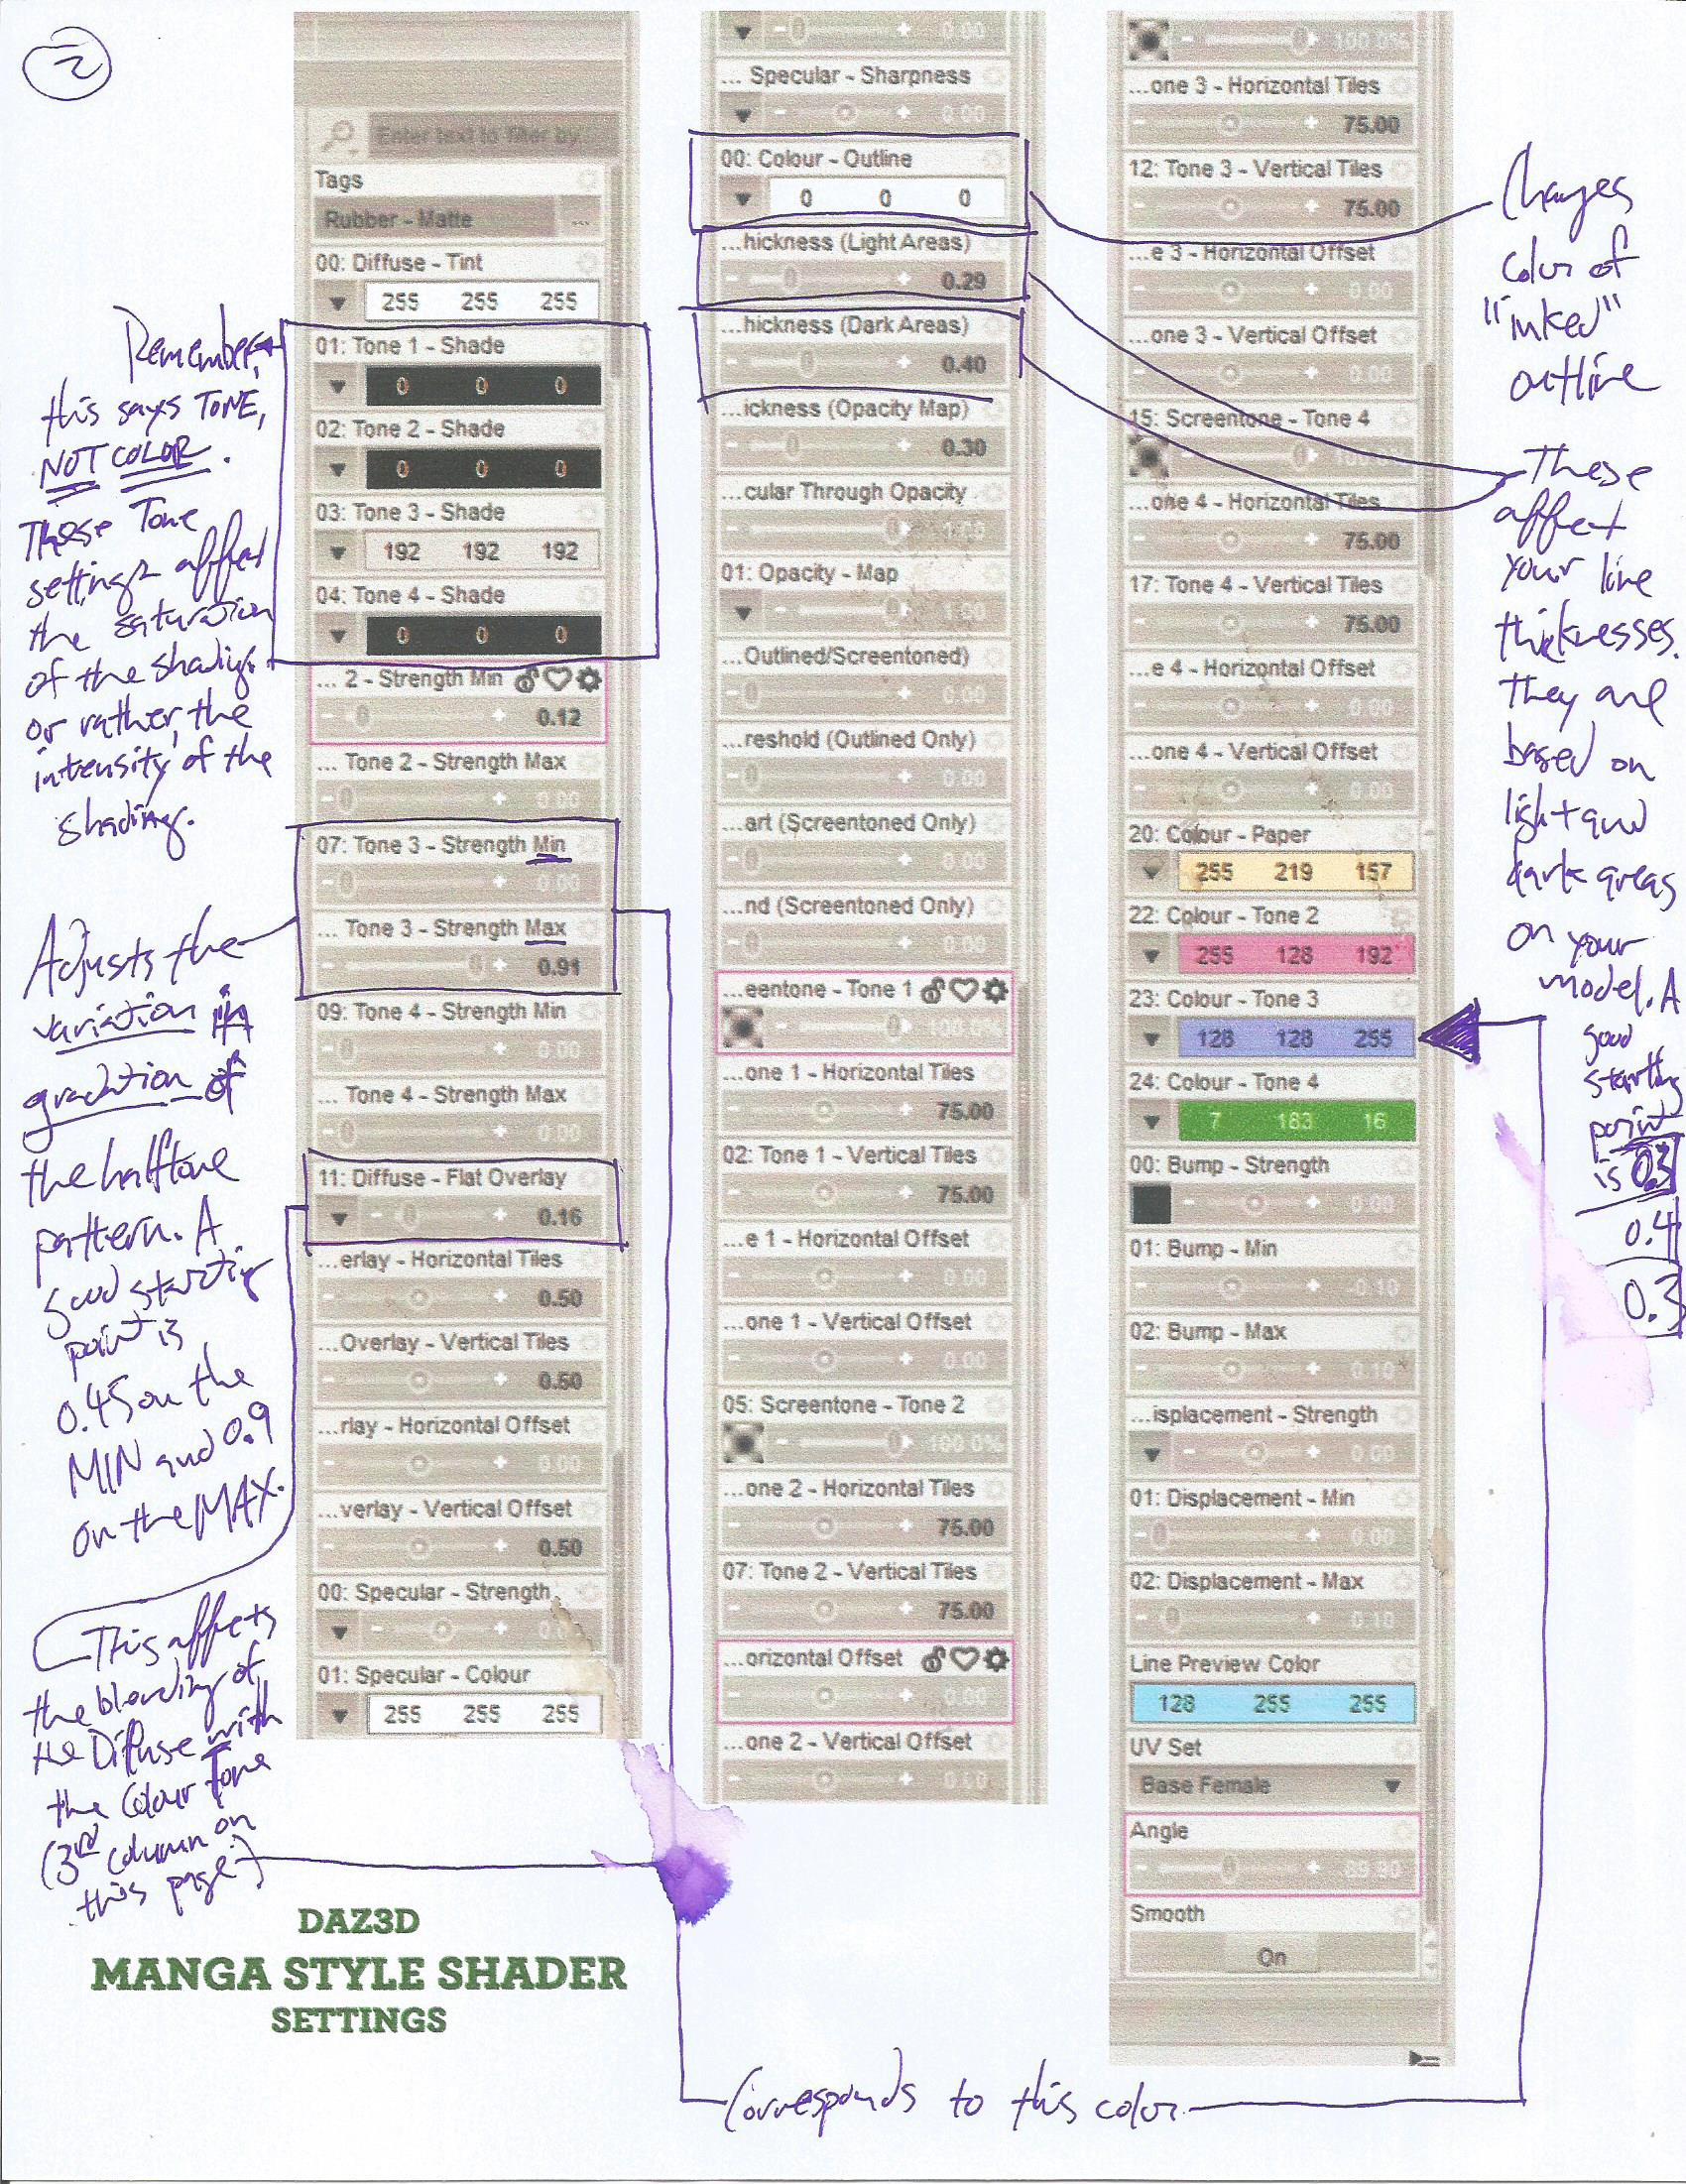 2
Enter text to filter by...
Tags
Rubber - Matte
...
00: Diffuse - Tint
255 255 255
01: Tone 1 - Shade
0 0 0
02: Tone 2 - Shade
0 0 0
03: Tone 3 - Shade
192 192 192
04: Tone 4 - Shade
0 0 0
... 2 - Strength Min
0.12
... Tone 2 - Strength Max
0.00
07: Tone 3 - Strength Min
0.00
... Tone 3 - Strength Max
0.91
09: Tone 4 - Strength Min
0.00
... Tone 4 - Strength Max
0.00
11: Diffuse - Flat Overlay
0.16
...erlay - Horizontal Tiles
0.50
...Overlay - Vertical Tiles
0.50
...rlay - Horizontal Offset
0.00
...verlay - Vertical Offset
0.50
00: Specular - Strength
01: Specular - Colour
255 255 255
0.00
... Specular - Sharpness
0.00
00: Colour - Outline
0 0 0
...hickness (Light Areas)
0.29
...hickness (Dark Areas)
0.40
...ickness (Opacity Map)
0.30
...cular Through Opacity
01: Opacity - Map
...Outlined/Screentoned)
0.00
...reshold (Outlined Only)
0.00
...art (Screentoned Only)
0.00
...nd (Screentoned Only)
0.00
...eentone - Tone 1
...one 1 - Horizontal Tiles
75.00
02: Tone 1 - Vertical Tiles
75.00
...e 1 - Horizontal Offset
0.00
...one 1 - Vertical Offset
0.00
05: Screentone - Tone 2
100.0%
...one 2 - Horizontal Tiles
75.00
07: Tone 2 - Vertical Tiles
75.00
...orizontal Offset
0.00
...one 2 - Vertical Offset
0.00
100.0%
...one 3 - Horizontal Tiles
75.00
12: Tone 3 - Vertical Tiles
75.00
...e 3 - Horizontal Offset
0.00
...one 3 - Vertical Offset
0.00
15: Screentone - Tone 4
...one 4 - Horizontal Tiles
75.00
17: Tone 4 - Vertical Tiles
75.00
...e 4 - Horizontal Offset
0.00
...one 4 - Vertical Offset
0.00
20: Colour - Paper
255 219 157
22: Colour - Tone 2
255 128 192
23: Colour - Tone 3
128 128 255
24: Colour - Tone 4
7 183 16
00: Bump - Strength
0.00
01: Bump - Min
-0.10
02: Bump - Max
0.10
...isplacement - Strength
0.00
01: Displacement - Min
0.00
02: Displacement - Max
0.10
Line Preview Color
128 255 255
UV Set
Base Female
Angle
Smooth
On
Remember,
this says TONE,
NOT COLOR.
These Tone
settings affect
the saturation
of the shading.
or rather, the
intensity of the
shading.
Adjusts the
variation in
gradation of
the halftone
pattern. A
good starting
point is
0.45 on the
MIN and 0.9
on the MAX.
This affects
the blending of
the Diffuse with
the Colour Tone
(3rd column on
this page.)
Changes
color of
"inked"
outline
These
affect
your line
thicknesses.
They are
based on
light and
dark areas
on your
model. A
good
starting
point
is 0.3
0.4
0.3
Corresponds to this color.
DAZ3D
MANGA STYLE SHADER
SETTINGS